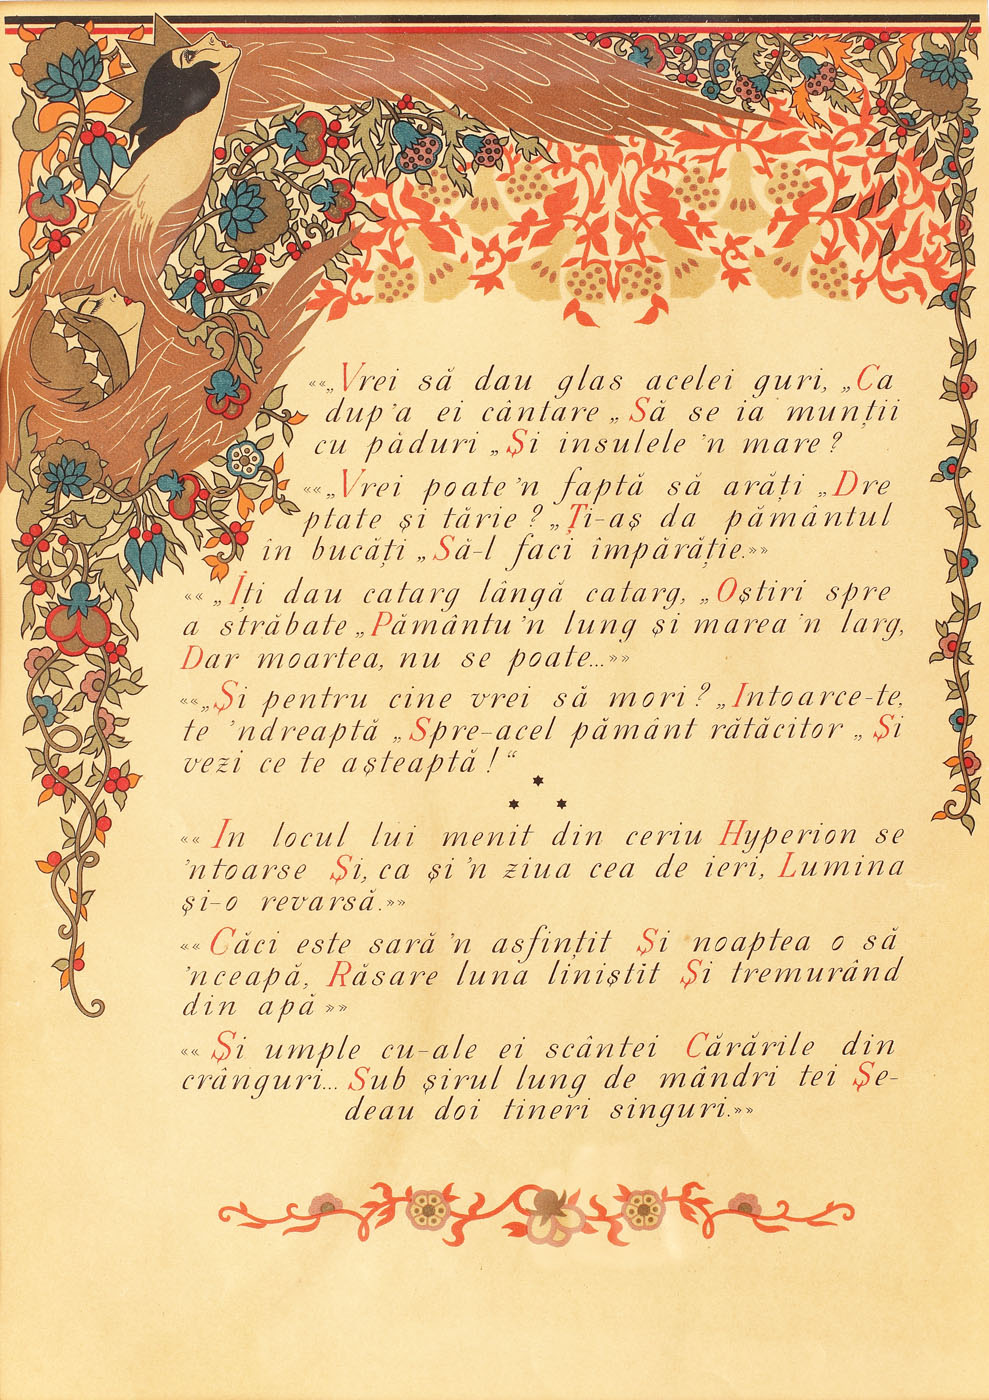 ««„Vrei să dau glas acelei guri, „Ca
dup'a ei cântare „Să se ia munții
cu păduri „Și insulele 'n mare?
««„Vrei poate 'n faptă să arăți „Dre
ptate și tărie? „Ți-aș da pământul
în bucăți „Să-l faci împărăție.»»
««„Iți dau catarg lângă catarg, „Oștiri spre
a străbate „Pământu 'n lung și marea 'n larg,
Dar moartea, nu se poate...»»
««„Și pentru cine vrei să mori? „Intoarce-te,
te 'ndreaptă „Spre-acel pământ rătăcitor „Și
vezi ce te așteaptă!“
«« In locul lui menit din ceriu Hyperion se
'ntoarse Și, ca și 'n ziua cea de ieri, Lumina
și-o revarsă.»»
«« Căci este sară 'n asfințit Și noaptea o să
'nceapă, Răsare luna liniștit Și tremurând
din apă »»
«« Și umple cu-ale ei scântei Cărările din
crânguri... Sub șirul lung de mândri tei Șe-
deau doi tineri singuri.»»